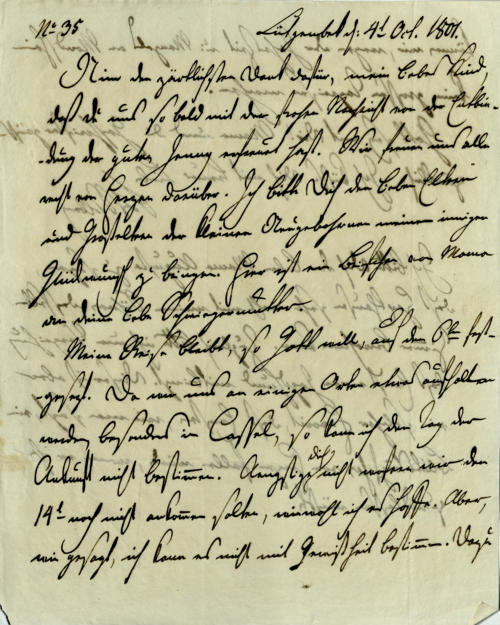 No 35 Lütgenhof d. 4t Oct. 1801.
Nim den zärtlichsten Dank dafür, mein liebes Kind,
daß du uns so bald mit der frohen Nachricht von der Entbin-
-dung der guten Jenny erfreuet hast. Wir freuen uns alle
recht von Herzen darüber. Ich bitte Dich den lieben Eltern
und Großeltern der kleinen Neugebohrnen meinen innigen
Glückwunsch zu bringen. Hier ist ein Briefchen von Mama
an deine liebe Schwiegermutter.
Meine Reise bleibt, so Gott will, auf den 6ten fest-
-gesezt. Da wir uns an einigen Orten etwas aufhalten
werden, besonders in Cassel, so kann ich den Tag der
Ankunft nicht bestimmen. Aengstige dich nicht wofern wir den
14t noch nicht ankommen solten, wiewohl ich es hoffe. Aber,
wie gesagt, ich kann es nicht mit Gewißheit bestimmen. Dazu